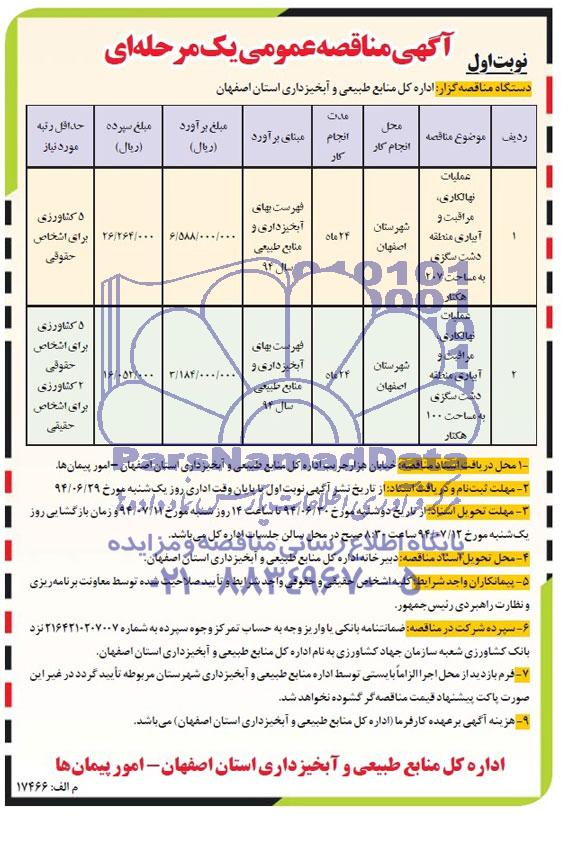 آگهی مناقصه عمومی یک مرحله‌ای
نوبت اول
دستگاه مناقصه‌گزار: اداره کل منابع طبیعی و آبخیزداری استان اصفهان
ردیف | موضوع مناقصه | محل انجام کار | مدت انجام کار | مبنای برآورد | مبلغ برآورد (ریال) | مبلغ سپرده (ریال) | حداقل رتبه مورد نیاز
۱ | عملیات نهالکاری، مراقبت و آبیاری منطقه دشت سگزی به مساحت ۲۰۷ هکتار | شهرستان اصفهان | ۲۴ ماه | فهرست بهای آبخیزداری و منابع طبیعی سال ۹۴ | ۶/۵۸۸/۰۰۰/۰۰۰ | ۲۶/۲۶۴/۰۰۰ | ۵ کشاورزی برای اشخاص حقوقی
۲ | عملیات نهالکاری، مراقبت و آبیاری منطقه دشت سگزی به مساحت ۱۰۰ هکتار | شهرستان اصفهان | ۲۴ ماه | فهرست بهای آبخیزداری و منابع طبیعی سال ۹۴ | ۳/۱۸۴/۰۰۰/۰۰۰ | ۱۶/۰۵۲/۰۰۰ | ۵ کشاورزی برای اشخاص حقوقی ۲ کشاورزی برای اشخاص حقیقی
ParsNamadData
۱- محل دریافت اسناد مناقصه: خیابان هزارجریب اداره کل منابع طبیعی و آبخیزداری استان اصفهان – امور پیمان‌ها.
۲- مهلت ثبت‌نام و دریافت اسناد: از تاریخ نشر آگهی نوبت اول تا پایان وقت اداری روز یک‌شنبه مورخ ۹۴/۰۶/۲۹
۳- مهلت تحویل اسناد: از تاریخ دوشنبه مورخ ۹۴/۰۶/۳۰ تا ساعت ۱۴ روز شنبه مورخ ۹۴/۰۷/۱۱ و زمان بازگشایی روز
یک‌شنبه مورخ ۹۴/۰۷/۱۲ ساعت ۸:۳۰ صبح در محل سالن جلسات اداره کل می‌باشد.
پایگاه اطلاع رسانی مناقصه و مزایده
۴- محل تحویل اسناد مناقصه: دبیرخانه اداره کل منابع طبیعی و آبخیزداری استان اصفهان.
۵- پیمانکاران واجد شرایط: کلیه اشخاص حقیقی و حقوقی واجد شرایط و تأیید صلاحیت شده توسط معاونت برنامه‌ریزی
و نظارت راهبردی رئیس جمهور.
۰۲۱-۸۸۳۴۹۶۷۰-۵
۶- سپرده شرکت در مناقصه: ضمانتنامه بانکی یا واریز وجه به حساب تمرکز وجوه سپرده به شماره ۲۱۶۴۲۱۰۲۰۷۰۰۷ نزد
بانک کشاورزی شعبه سازمان جهاد کشاورزی به نام اداره کل منابع طبیعی و آبخیزداری استان اصفهان.
۷- فرم بازدید از محل اجرا الزاماً بایستی توسط اداره منابع طبیعی و آبخیزداری شهرستان مربوطه تأیید گردد در غیر این
صورت پاکت پیشنهاد قیمت مناقصه‌گر گشوده نخواهد شد.
۹- هزینه آگهی بر عهده کارفرما (اداره کل منابع طبیعی و آبخیزداری استان اصفهان) می‌باشد.
اداره کل منابع طبیعی و آبخیزداری استان اصفهان – امور پیمان‌ها
م الف: ۱۷۴۶۶